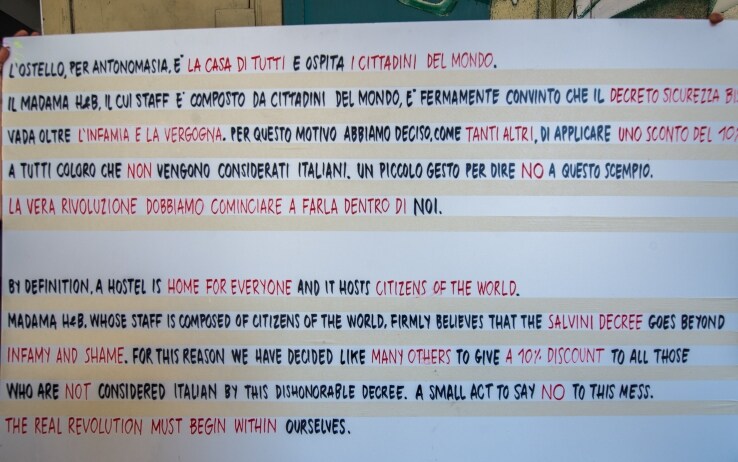 L'OSTELLO, PER ANTONOMASIA, E' LA CASA DI TUTTI E OSPITA I CITTADINI DEL MONDO.
IL MADAMA H&B, IL CUI STAFF E' COMPOSTO DA CITTADINI DEL MONDO, E' FERMAMENTE CONVINTO CHE IL DECRETO SICUREZZA BIS
VADA OLTRE L'INFAMIA E LA VERGOGNA. PER QUESTO MOTIVO ABBIAMO DECISO, COME TANTI ALTRI, DI APPLICARE UNO SCONTO DEL 10%
A TUTTI COLORO CHE NON VENGONO CONSIDERATI ITALIANI. UN PICCOLO GESTO PER DIRE NO A QUESTO SCEMPIO.
LA VERA RIVOLUZIONE DOBBIAMO COMINCIARE A FARLA DENTRO DI NOI.
BY DEFINITION, A HOSTEL IS HOME FOR EVERYONE AND IT HOSTS CITIZENS OF THE WORLD.
MADAMA H&B, WHOSE STAFF IS COMPOSED OF CITIZENS OF THE WORLD, FIRMLY BELIEVES THAT THE SALVINI DECREE GOES BEYOND
INFAMY AND SHAME. FOR THIS REASON WE HAVE DECIDED LIKE MANY OTHERS TO GIVE A 10% DISCOUNT TO ALL THOSE
WHO ARE NOT CONSIDERED ITALIAN BY THIS DISHONORABLE DECREE. A SMALL ACT TO SAY NO TO THIS MESS.
THE REAL REVOLUTION MUST BEGIN WITHIN OURSELVES.